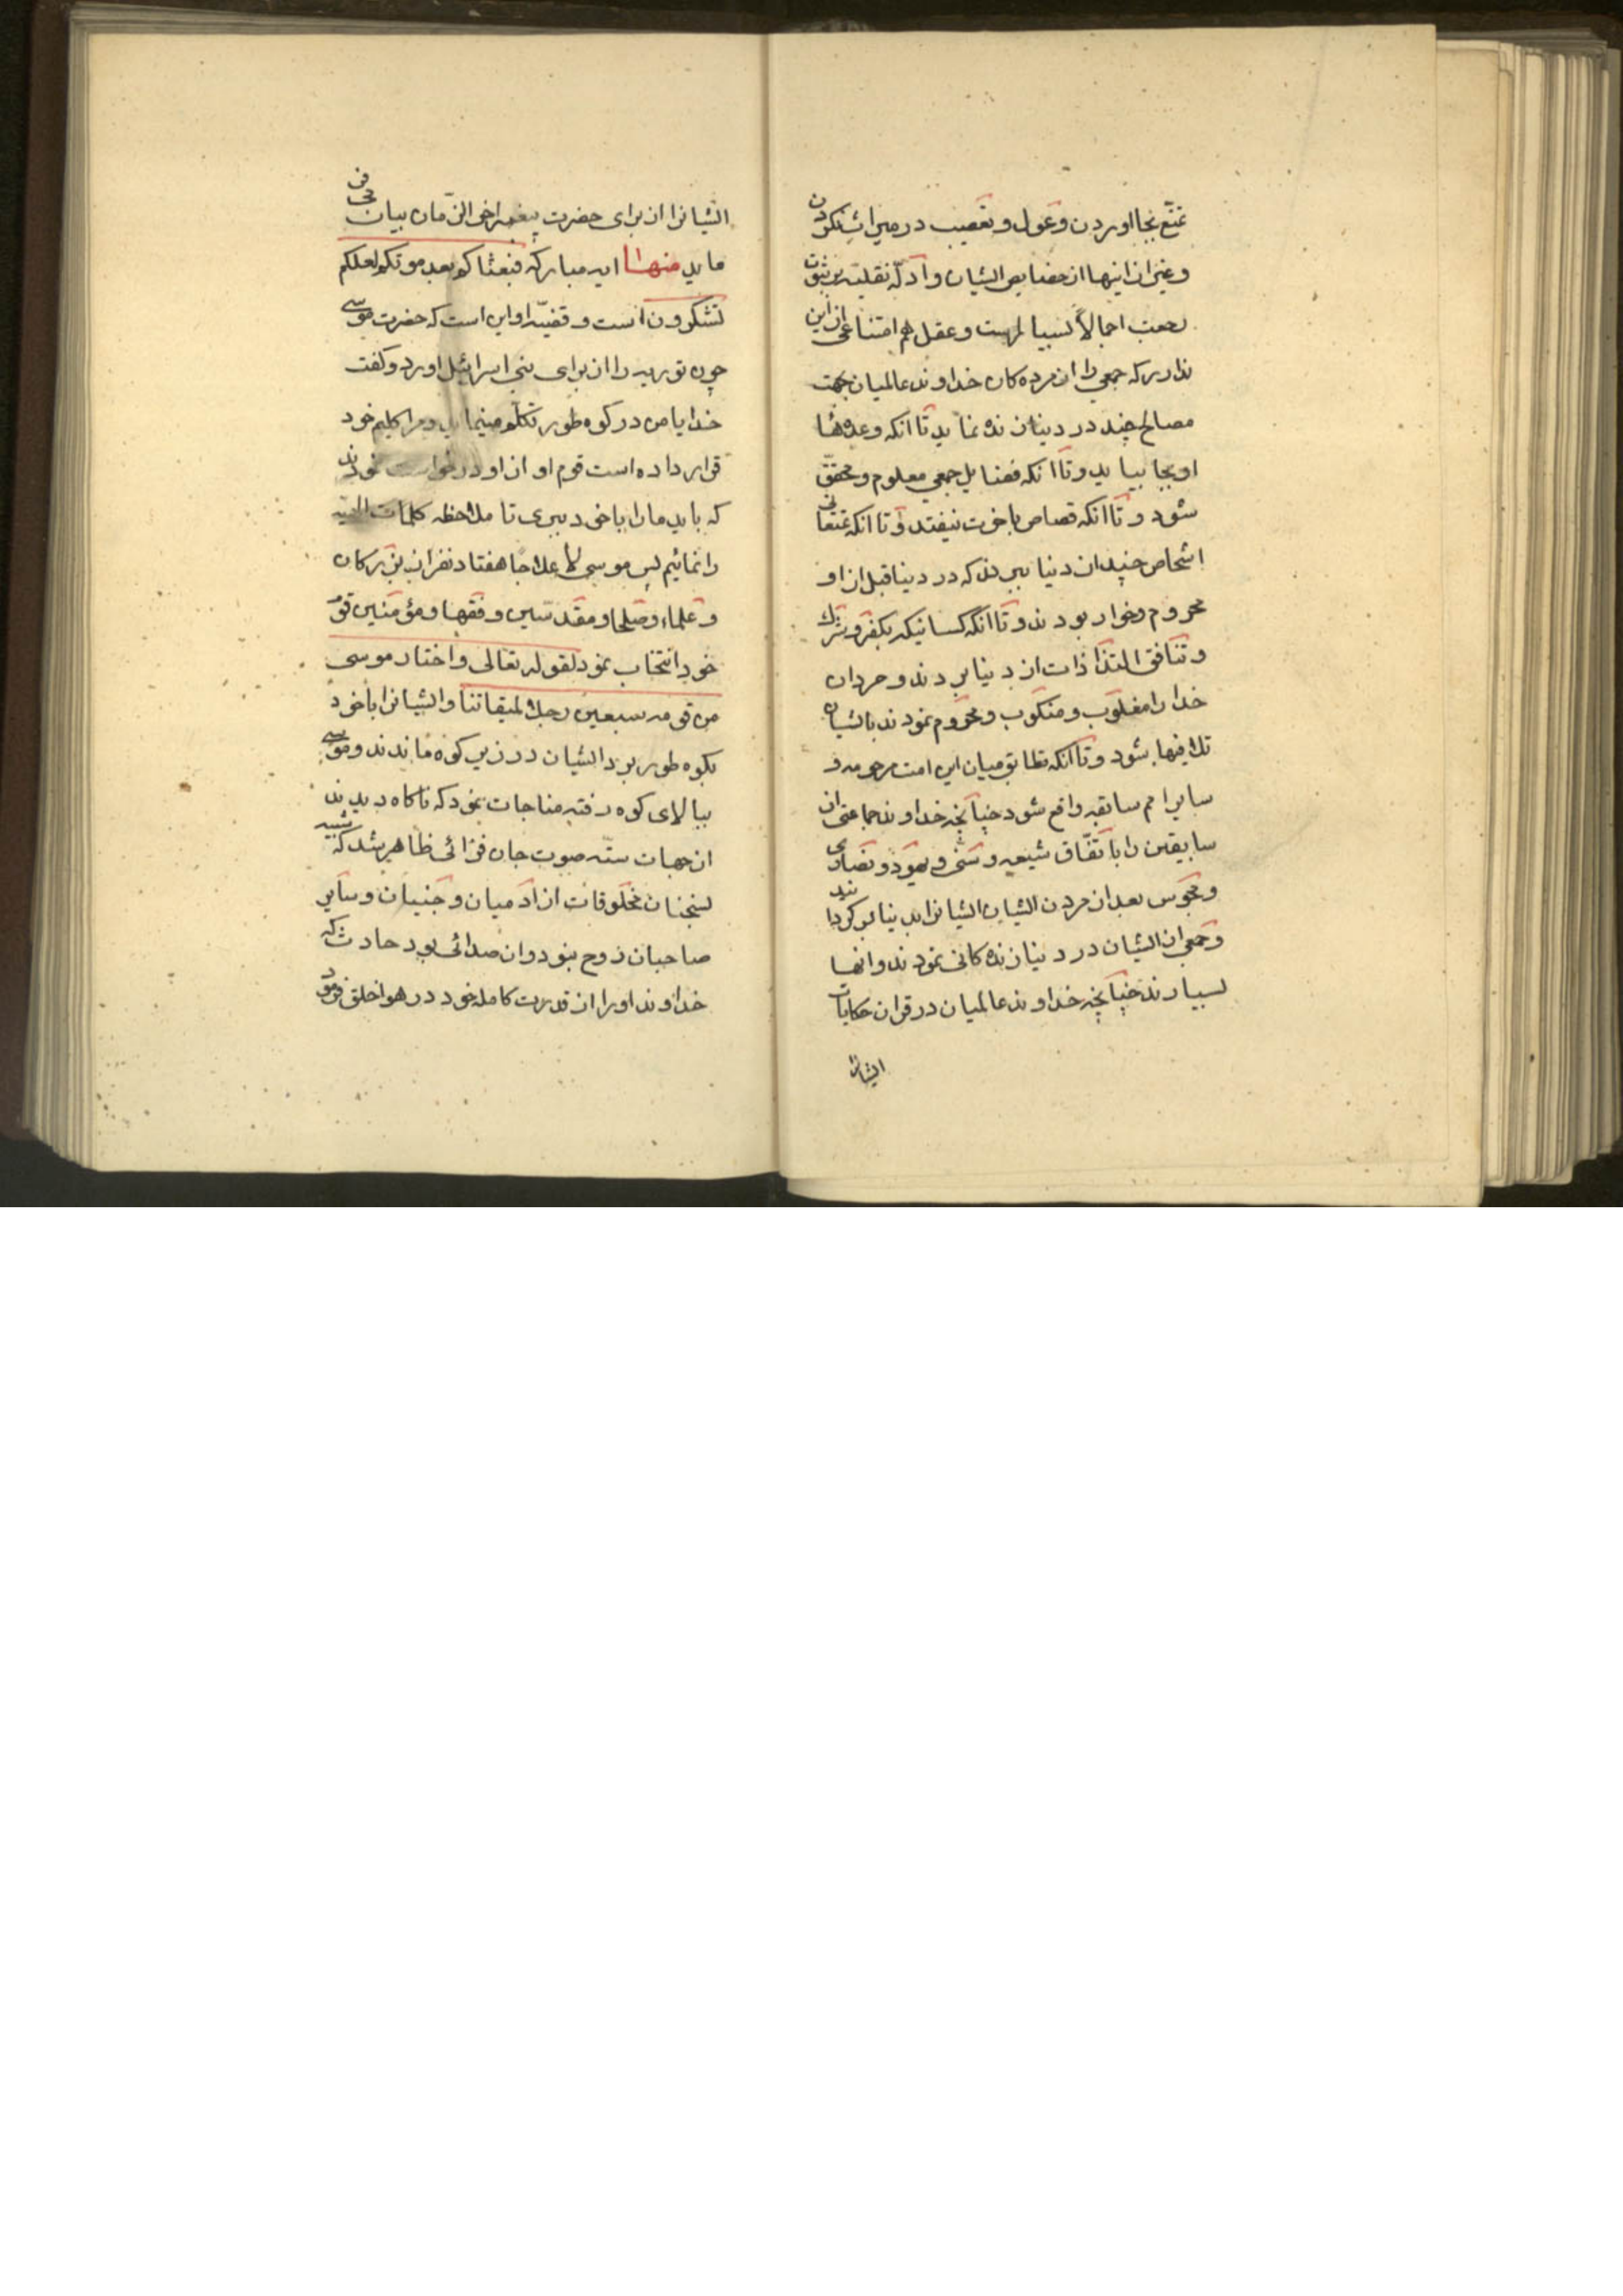 تمتّع بجا اوردن و عول و تعصیب در میراث نکردن
و غیر از اینها از خصایص ایشان و ادلّه نقلیّه بر ثبوت
رجعت اجمالاً بسیار است و عقل هم امتناعی از این
ندارد که جمعی را از مرده کان خداوند عالمیان جهت
مصالح چند در دنیا زنده نماید تا انکه وعده ها
او بجا بیاید و تا انکه فضایل جمعی معلوم و محقق
شود و تا انکه قصاص باخرت نیفتد و تا انکه تمتعاتی
اشخاص چند از دنیا ببرند که در دنیا قبل از او
محروم و خوار بودند و تا انکه کسانیکه بکفر و شرک
و تنافق التذاذات از دنیا بردند و مردان
خدا را مغلوب و منکوب و محروم نمودند بایشان
تلافیها بشود و تا انکه تطابق میان این امت مرحومه و
سایر امم سابقه واقع شود چنانچه خداوند جماعتی از
سابقین را باتفّاق شیعه و سنّی و یهود و نصاری
و مجوس بعد از مردن ایشان ایشانرا بدنیا بر کردانید
و جمعی از ایشان در دنیا زنده کانی نمودند و انها
بسیارند چنانچه خداوند عالمیان در قران حکایات
ایشانرا
ایشانرا از برای حضرت پیغمبر اخر الزّمان بیان می فر
ماید منها ایه مبارکه فبعثناکم بعد موتکم لعلکم
تشکرون است و قضیّه او این است که حضرت موسی
چون توریه را از برای بنی اسرائیل اورد و کفت
خدا با من در کوه طور تکلّم مینماید و مرا کلیم خود
قرار داده است قوم او از او درخواست نمودند
که باید ما را با خود ببری تا ملاحظه کلمات الهیّه
را نمائیم پس موسی لا علاجا هفتاد نفر از بزرکان
و علماء و صلحا و مقدّسین و فقها و مؤمنین قوم
خود انتخاب نمود لقوله تعالی و اختار موسی
من قومه سبعین رجلا لمیقاتنا و ایشانرا با خود
بکوه طور برد ایشان در زیر کوه ماندند و موسی
ببالای کوه رفته مناجات نمود که ناکاه دیدند
از جهات ستّه صوت جان فزائی ظاهر شد که شبیه
بسخنان مخلوقات از ادمیان و جنیان و سایر
صاحبان روح نبود و ان صدائی بود حادث که
خداوند او را از قدرت کامله خود در هوا خلق فرمود